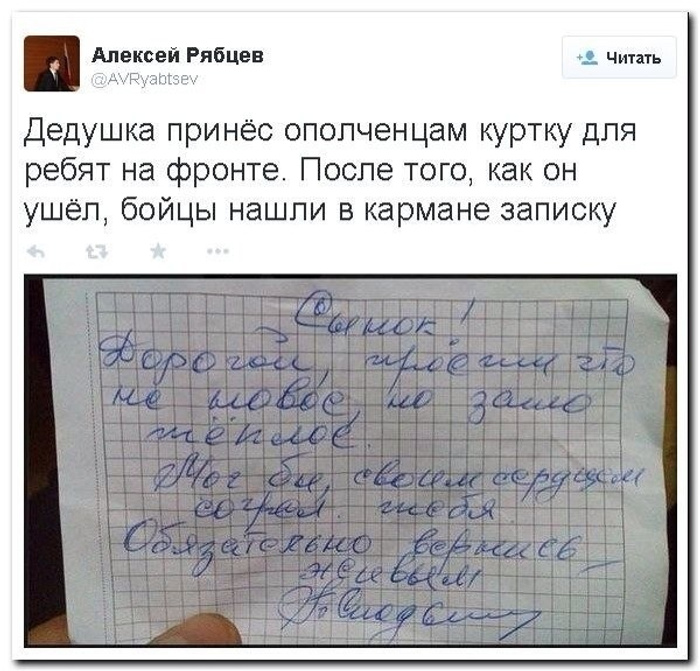 Алексей Рябцев
@AVRyabtsev
Читать
Дедушка принёс ополченцам куртку для
ребят на фронте. После того, как он
ушёл, бойцы нашли в кармане записку
Сынок!
Дорогой, прости что
не новое, но зато
тёплое.
Мог бы, своим сердцем
согрел тебя
Обязательно вернись
живым